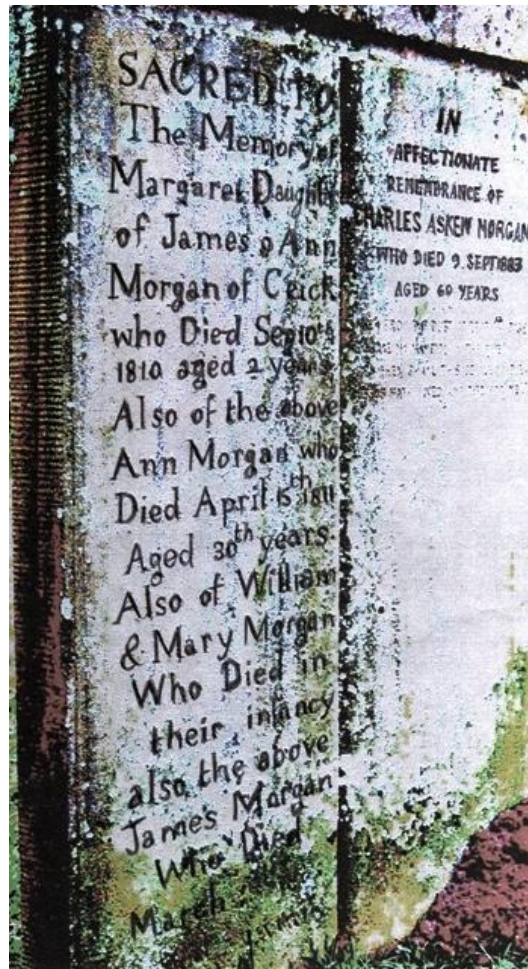 SACRED TO
The Memory of
Margaret Daughter
of James & Ann
Morgan of Crick
who Died Sep 10th
1810 aged 2 years
Also of the above
Ann Morgan who
Died April 15th 1811
Aged 30th years
Also of William
& Mary Morgan
Who Died in
their infancy
also the above
James Morgan
Who Died
March
IN
AFFECTIONATE
REMEMBRANCE OF
CHARLES ASKEW MORGAN
WHO DIED 9. SEPT 1883
AGED 60 YEARS